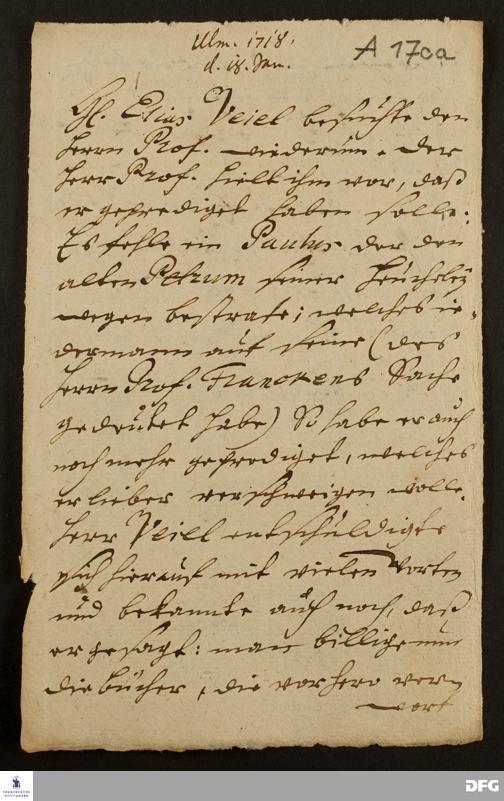 Ulm. 1718.
d. 18. Jan.
A 170a
H. Elias Veiel besuchte den
Herrn Prof. wiederum. Der
Herr Prof. hielt ihm vor, daß
er geprediget haben solle:
Es fehle ein Paulus der den
alten Petrum seiner Heucheley
wegen bestrafe; welches ie-
dermann auf seine (des
Herrn Prof. Franckens Sache
gedeutet habe) So habe er auch
noch mehr geprediget, welches
er lieber verschweigen wolle.
Herr Veiel entschuldigte
sich hierauf mit vielen Worten
und bekannte auch noch, daß
er gesagt: man billige nun
die bücher, die vorhero verw
wort
FRANCKESCHE
STIFTUNGEN
DFG